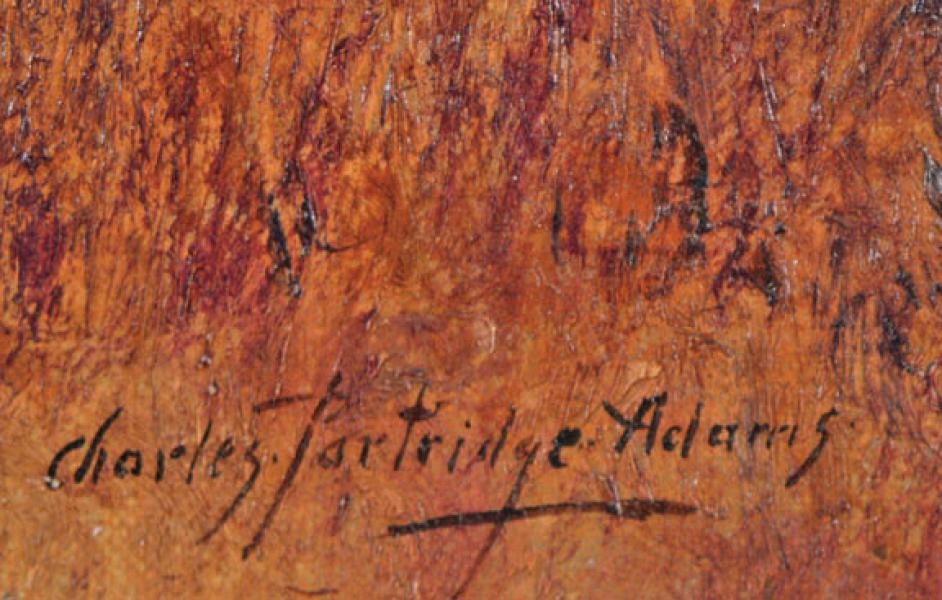 Charles Partridge Adams